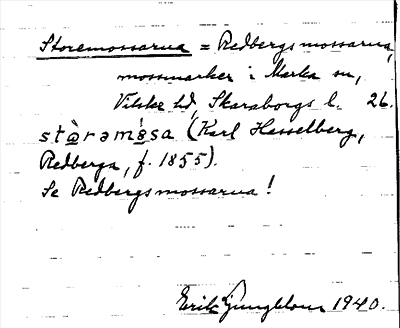 Storemossarna = Redbergsmossarna,
mossmarker i Marka sn,
Vilske hd, Skaraborgs l. 26.
stàrəmósa (Karl Hesselberg,
Redberga, f. 1855).
Se Redbergsmossarna!
Erik Ljungblom 1940.